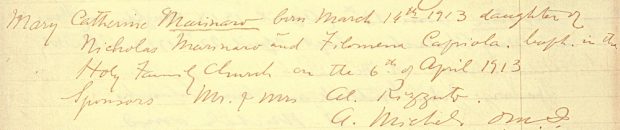 Mary Catherine Marinaro born March 14th 1913 daughter of
Nicholas Marinaro and Filomena Capiola. baph. in the
Holy Family Church on the 6th of April 1913
Sponsors Mr. & Mrs Al. Rizzuto.
A. Michel